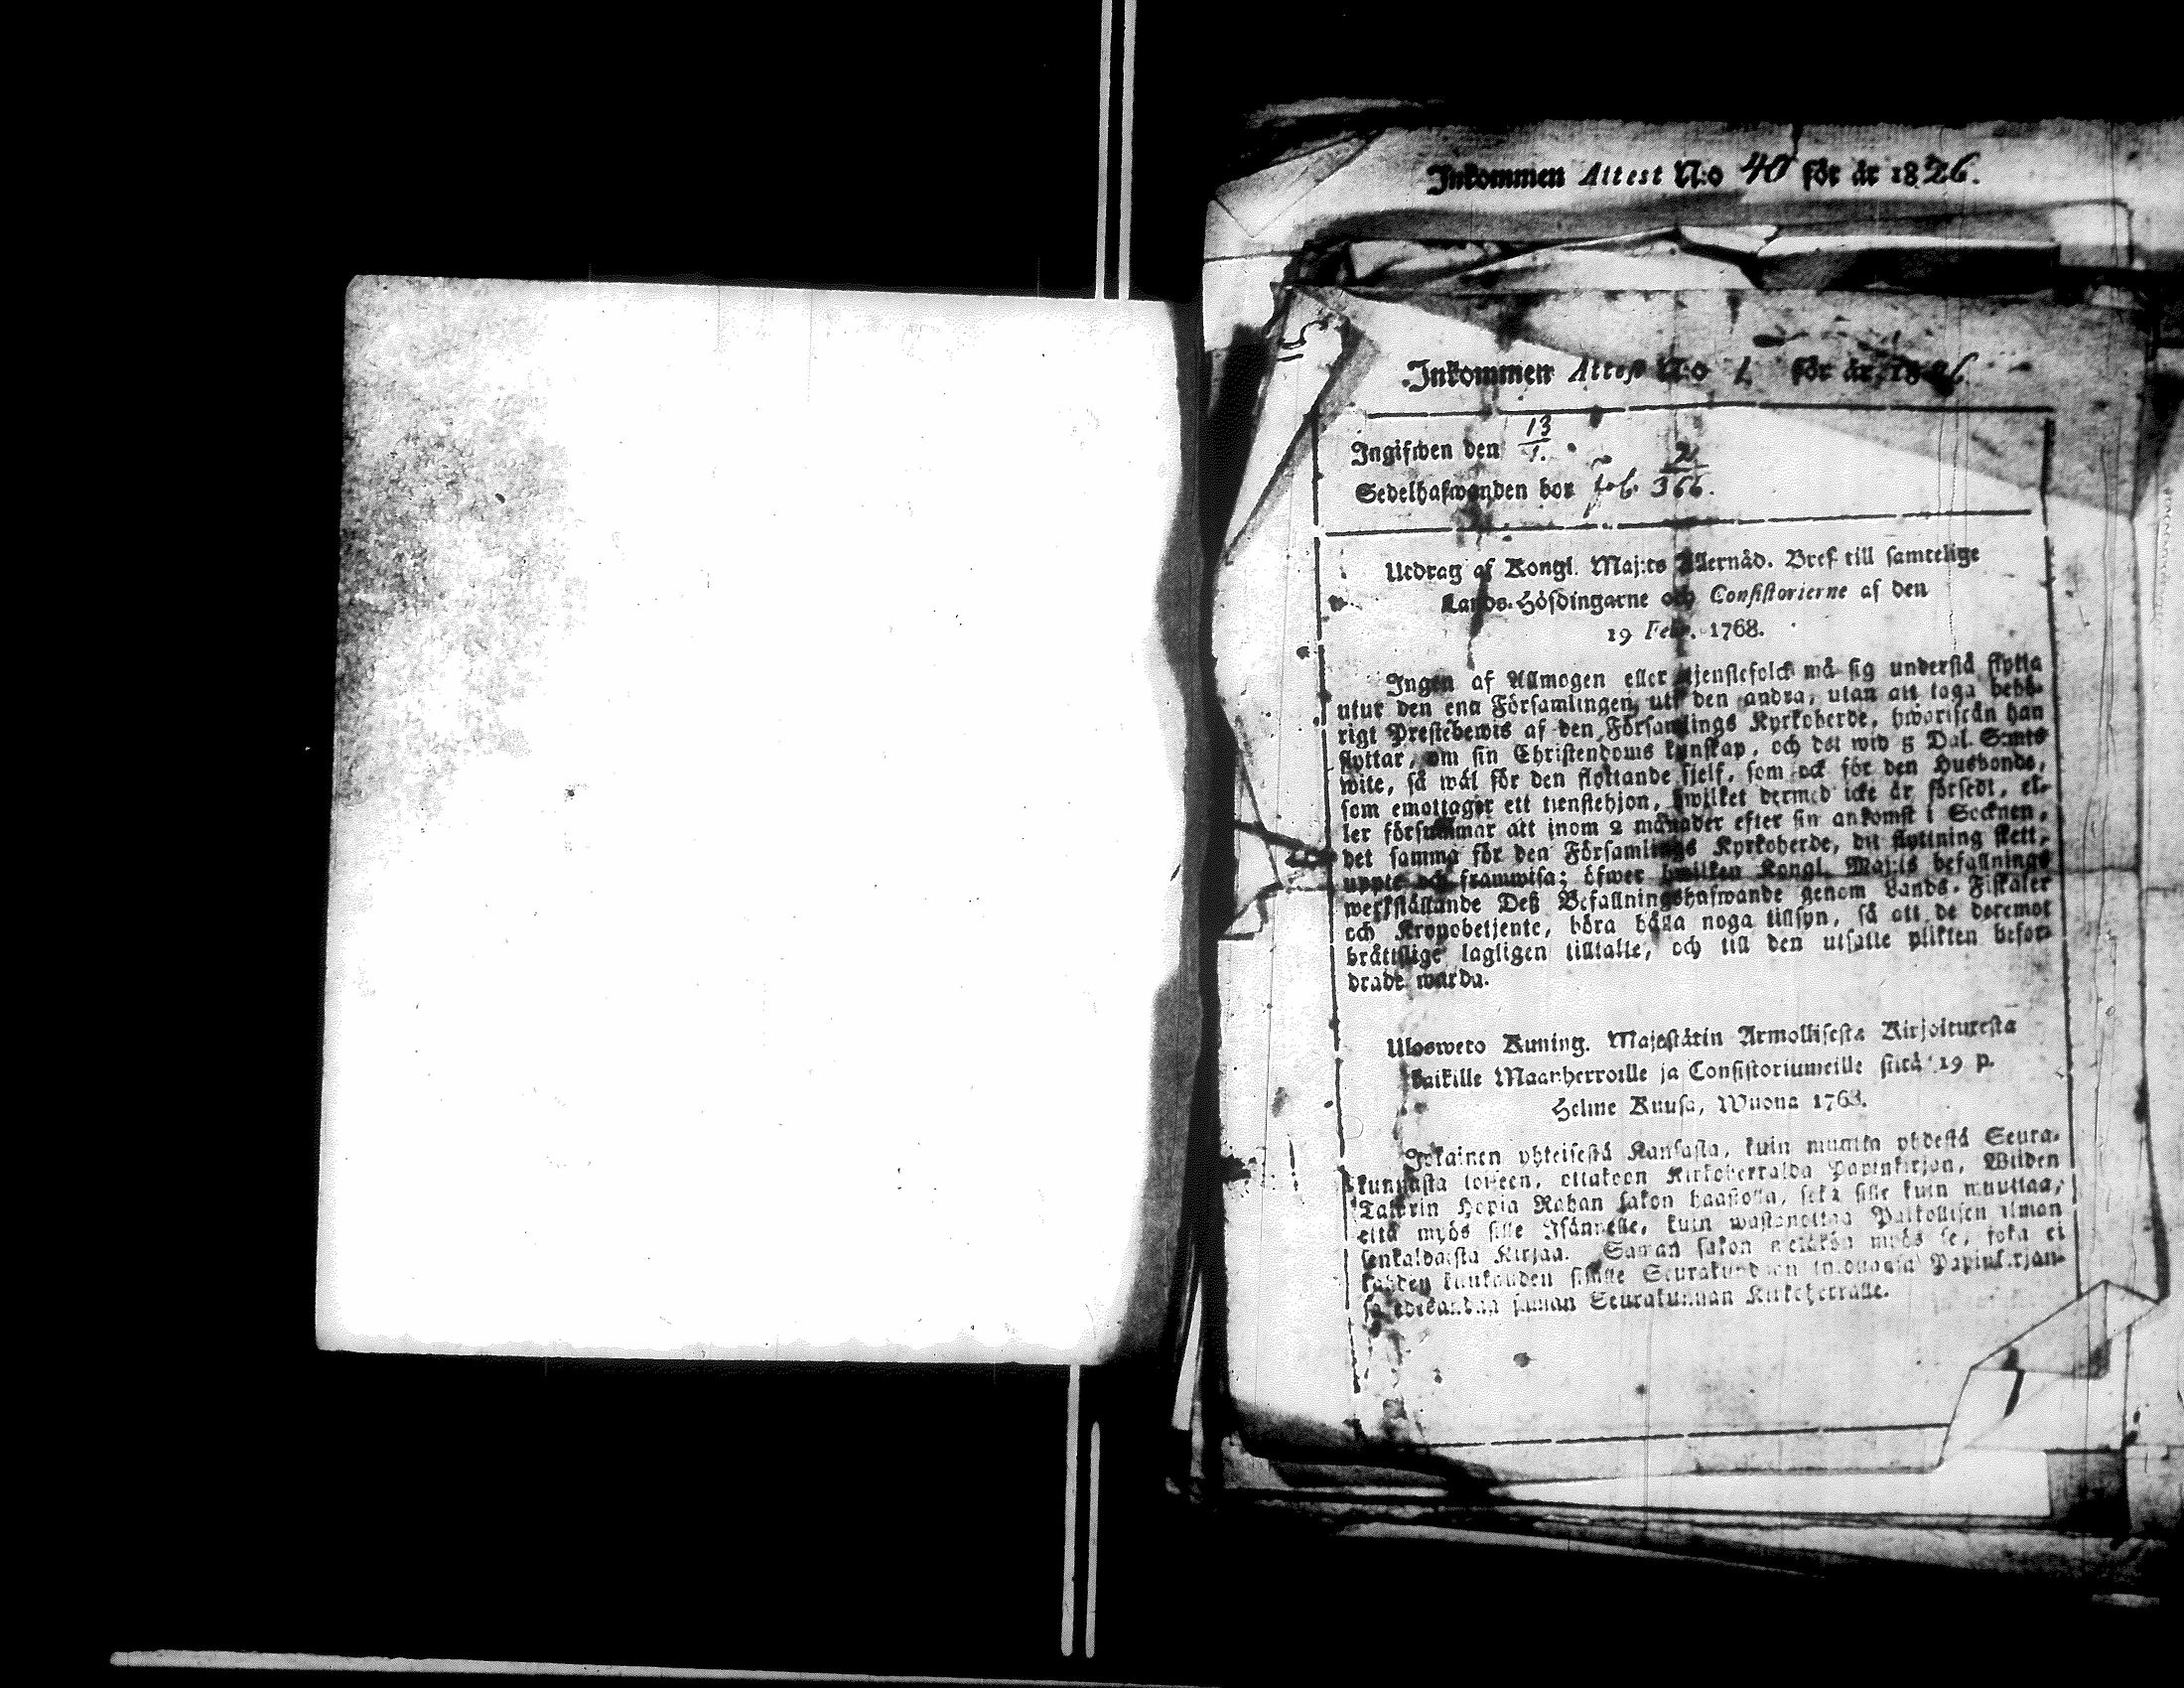 Inkommen Attest N:o 40 för år 1826.
Inkommen Attest N:o 1. för år, 1826
Ingifwen den 13/1.
Sedelhafwanden bor fol. 2/366.
Utdrag af Kongl. Maj:ts Allernåd. Bref till samtelige
Lands-Höfdingarne och Consistorierne af den
19 Febr. 1768.
Ingen af Allmogen eller tjenstefolck må sig understå flytta
utur den ena Församlingen uti den andra, utan att taga behö-
rigt Prestebewis af den Församlings Kyrkoherde, hworifrån han
flyttar, om sin Christendoms kunskap, och det wid 8 Dal. S:mts
wite, så wäl för den flyttande sjelf, som ock för den Husbonde,
som emottager ett tienstehjon, hwilket dermed icke är försedt, el-
ler försummar att inom 2 månader efter sin ankomst i Socknen,
det samma för den Församlings Kyrkoherde, dit flyttning skett,
uppte och framwisa; öfwer hwilken Kongl. Maj:ts befallnings
werkställande Deß Befallningshafwande genom Lands-Fiskaler
och Kronobetjente, böra hålla noga tillsyn, så att de deremot
bråttslige lagligen tilltalte, och till den utsatte plikten befor-
drade warda.
Ulosweto Kuning. Majestätin Armollisesta Kirjoituresta
kaikille Maanherroille ja Consistoriumeille siitä 19 p.
Helme Kuusa, Wuona 1768.
Jokainen yhteisestä Kansasta, kuin muutta yhdestä Seura-
kunnasta toiseen, ottakoon Kirkoherralda Papinkirjan, Wiiden
Talarin Hopia Rahan sakon haastolla, sekä sille kuin muuttaa,
että myös sille Isännelle, kuin wastanottaa Palkollisen ilman
senkaldaista Kirjaa. Saman sakon wetäkön myös se, joka ei
kahden kuukauden sisälle Seurakundaan tulduansa Papinkirjan-
sa edeskanna saman Seurakunnan Kirkoherralle.